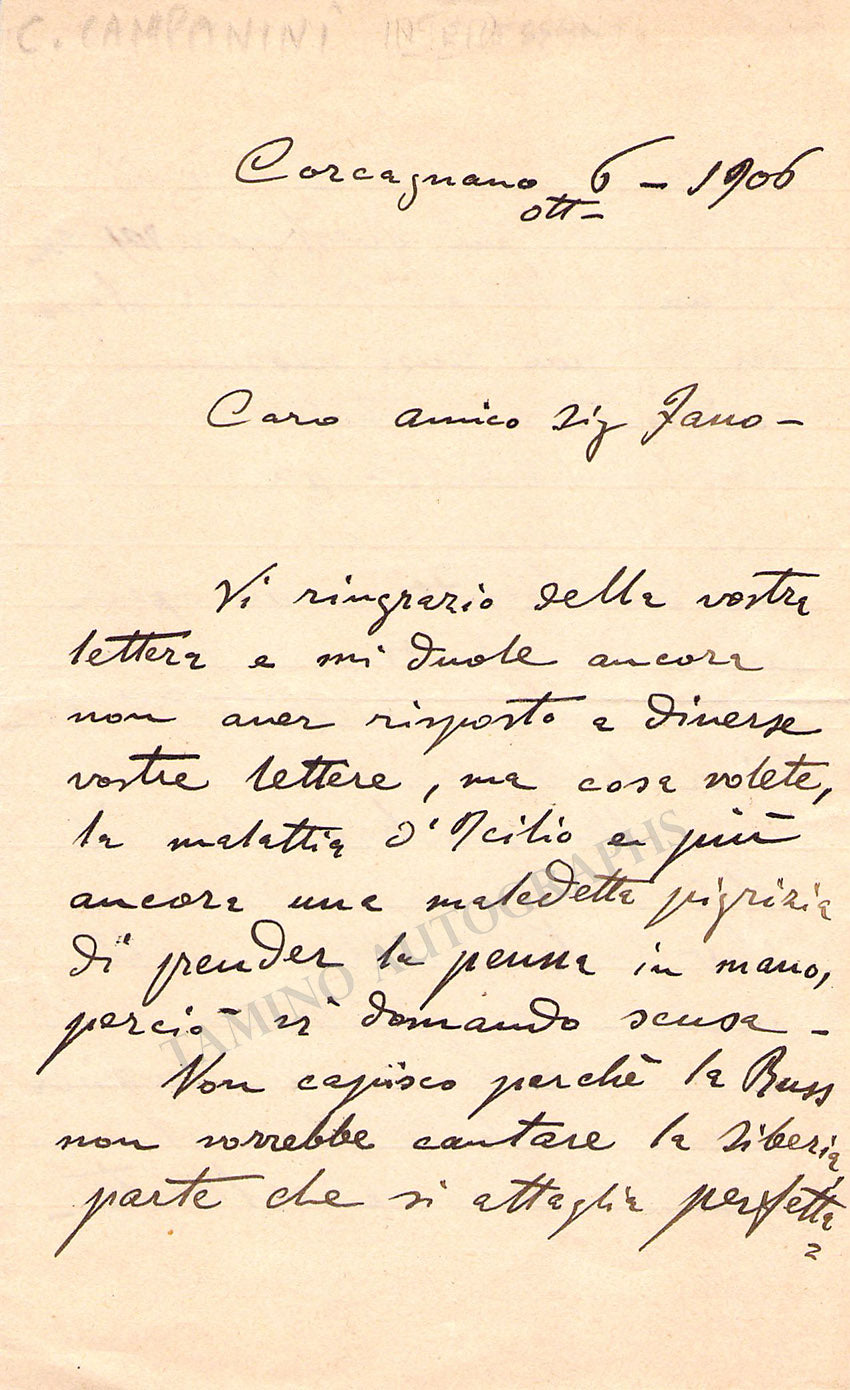 C. CAMPANINI
Corcagnano 6 - 1906
ott-
Caro amico Sig Fano -
Vi ringrazio della vostra
lettera e mi duole ancora
non aver risposto a diverse
vostre lettere, ma cosa volete,
la malattia d'Icilio e più
ancora una maledetta pigrizia
di prender la penna in mano,
perciò vi domando scusa -
Non capisco perchè la Russ
non vorrebbe cantare la Siberia,
parte che si attaglia perfetta
=
TAMINO AUTOGRAPHS